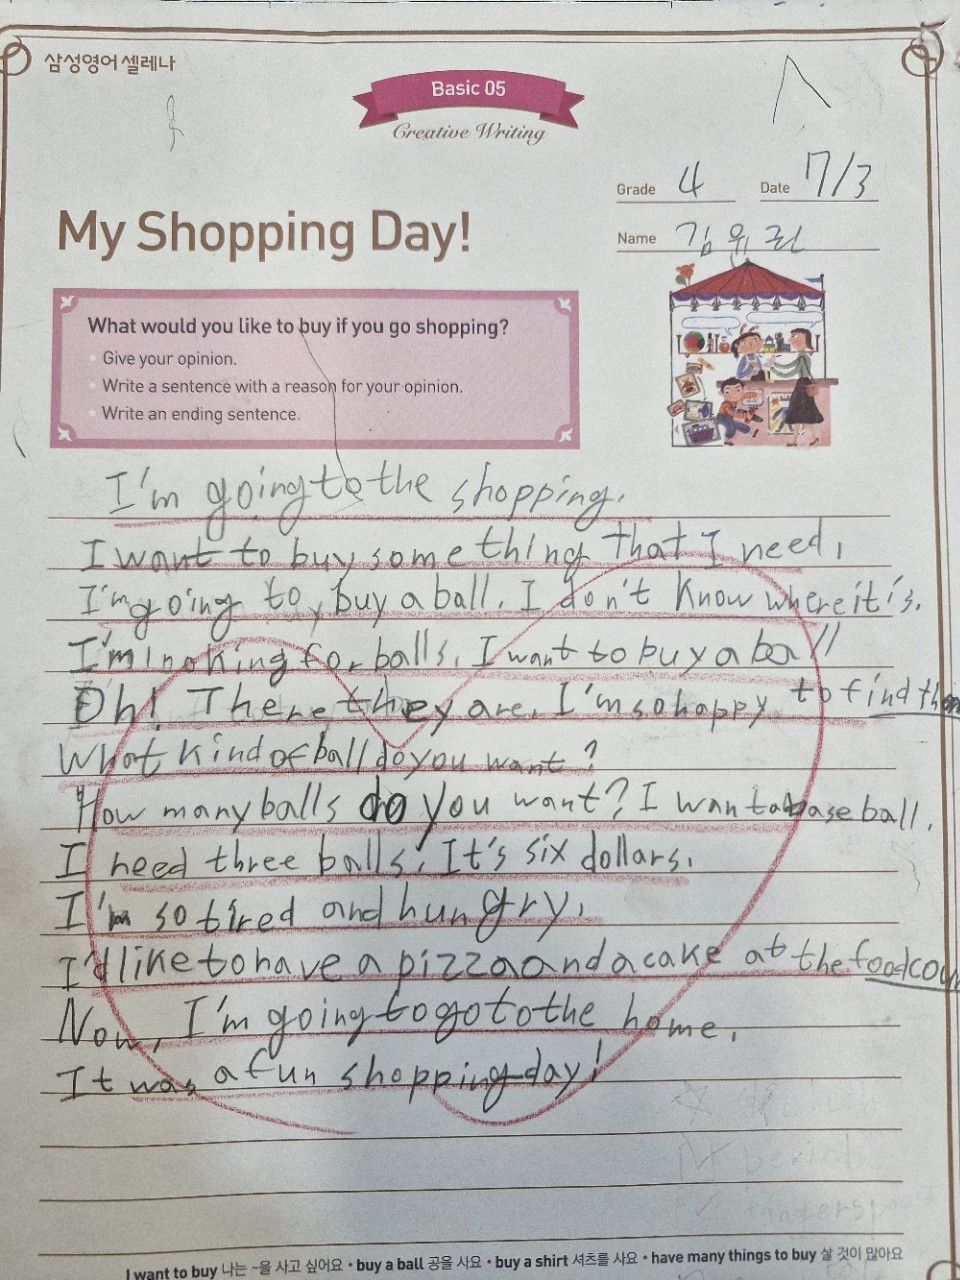 삼성영어 셀레나
Basic 05
Creative Writing
Grade 4 Date 17/3
Name 김
My Shopping Day!
What would you like to buy if you go shopping?
• Give your opinion.
• Write a sentence with a reason for your opinion.
• Write an ending sentence.
I'm going to the shopping.
I want to buy something that I need,
I'm going to, buy a ball. I don't know where it is.
I'm looking for balls. I want to buy a ball
Oh! There they are. I'm so happy to find them
What kind of ball do you want?
How many balls do you want? I want a baseball.
I need three balls. It's six dollars.
I'm so tired and hungry.
I'd like to have a pizza and a cake at the food
Now, I'm going to go to the home.
It was a fun shopping day!
I want to buy 나는 ~을 사고 싶어요 • buy a ball 공을 사요 • buy a shirt 셔츠를 사요 • have many things to buy 살 것이 많아요